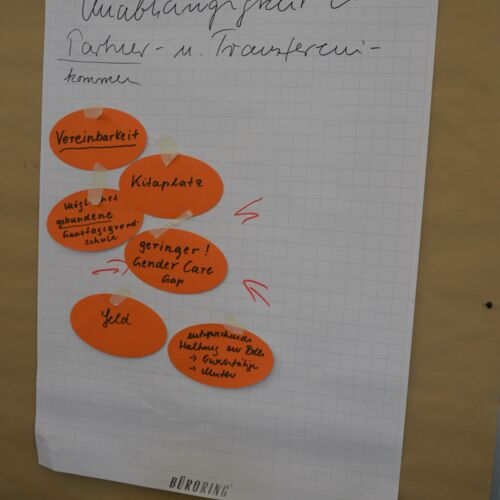 Unabhängigkeit v.
Partner- u. Transferein-
kommen
Vereinbarkeit
Kitaplatz
möglichst
gebundene
Ganztagsgrund-
schule
geringer!
Gender Care
Gap
Geld
entsprechende
Haltung zur Rolle
→ Erwerbstätige
→ Mutter
BÜRORING